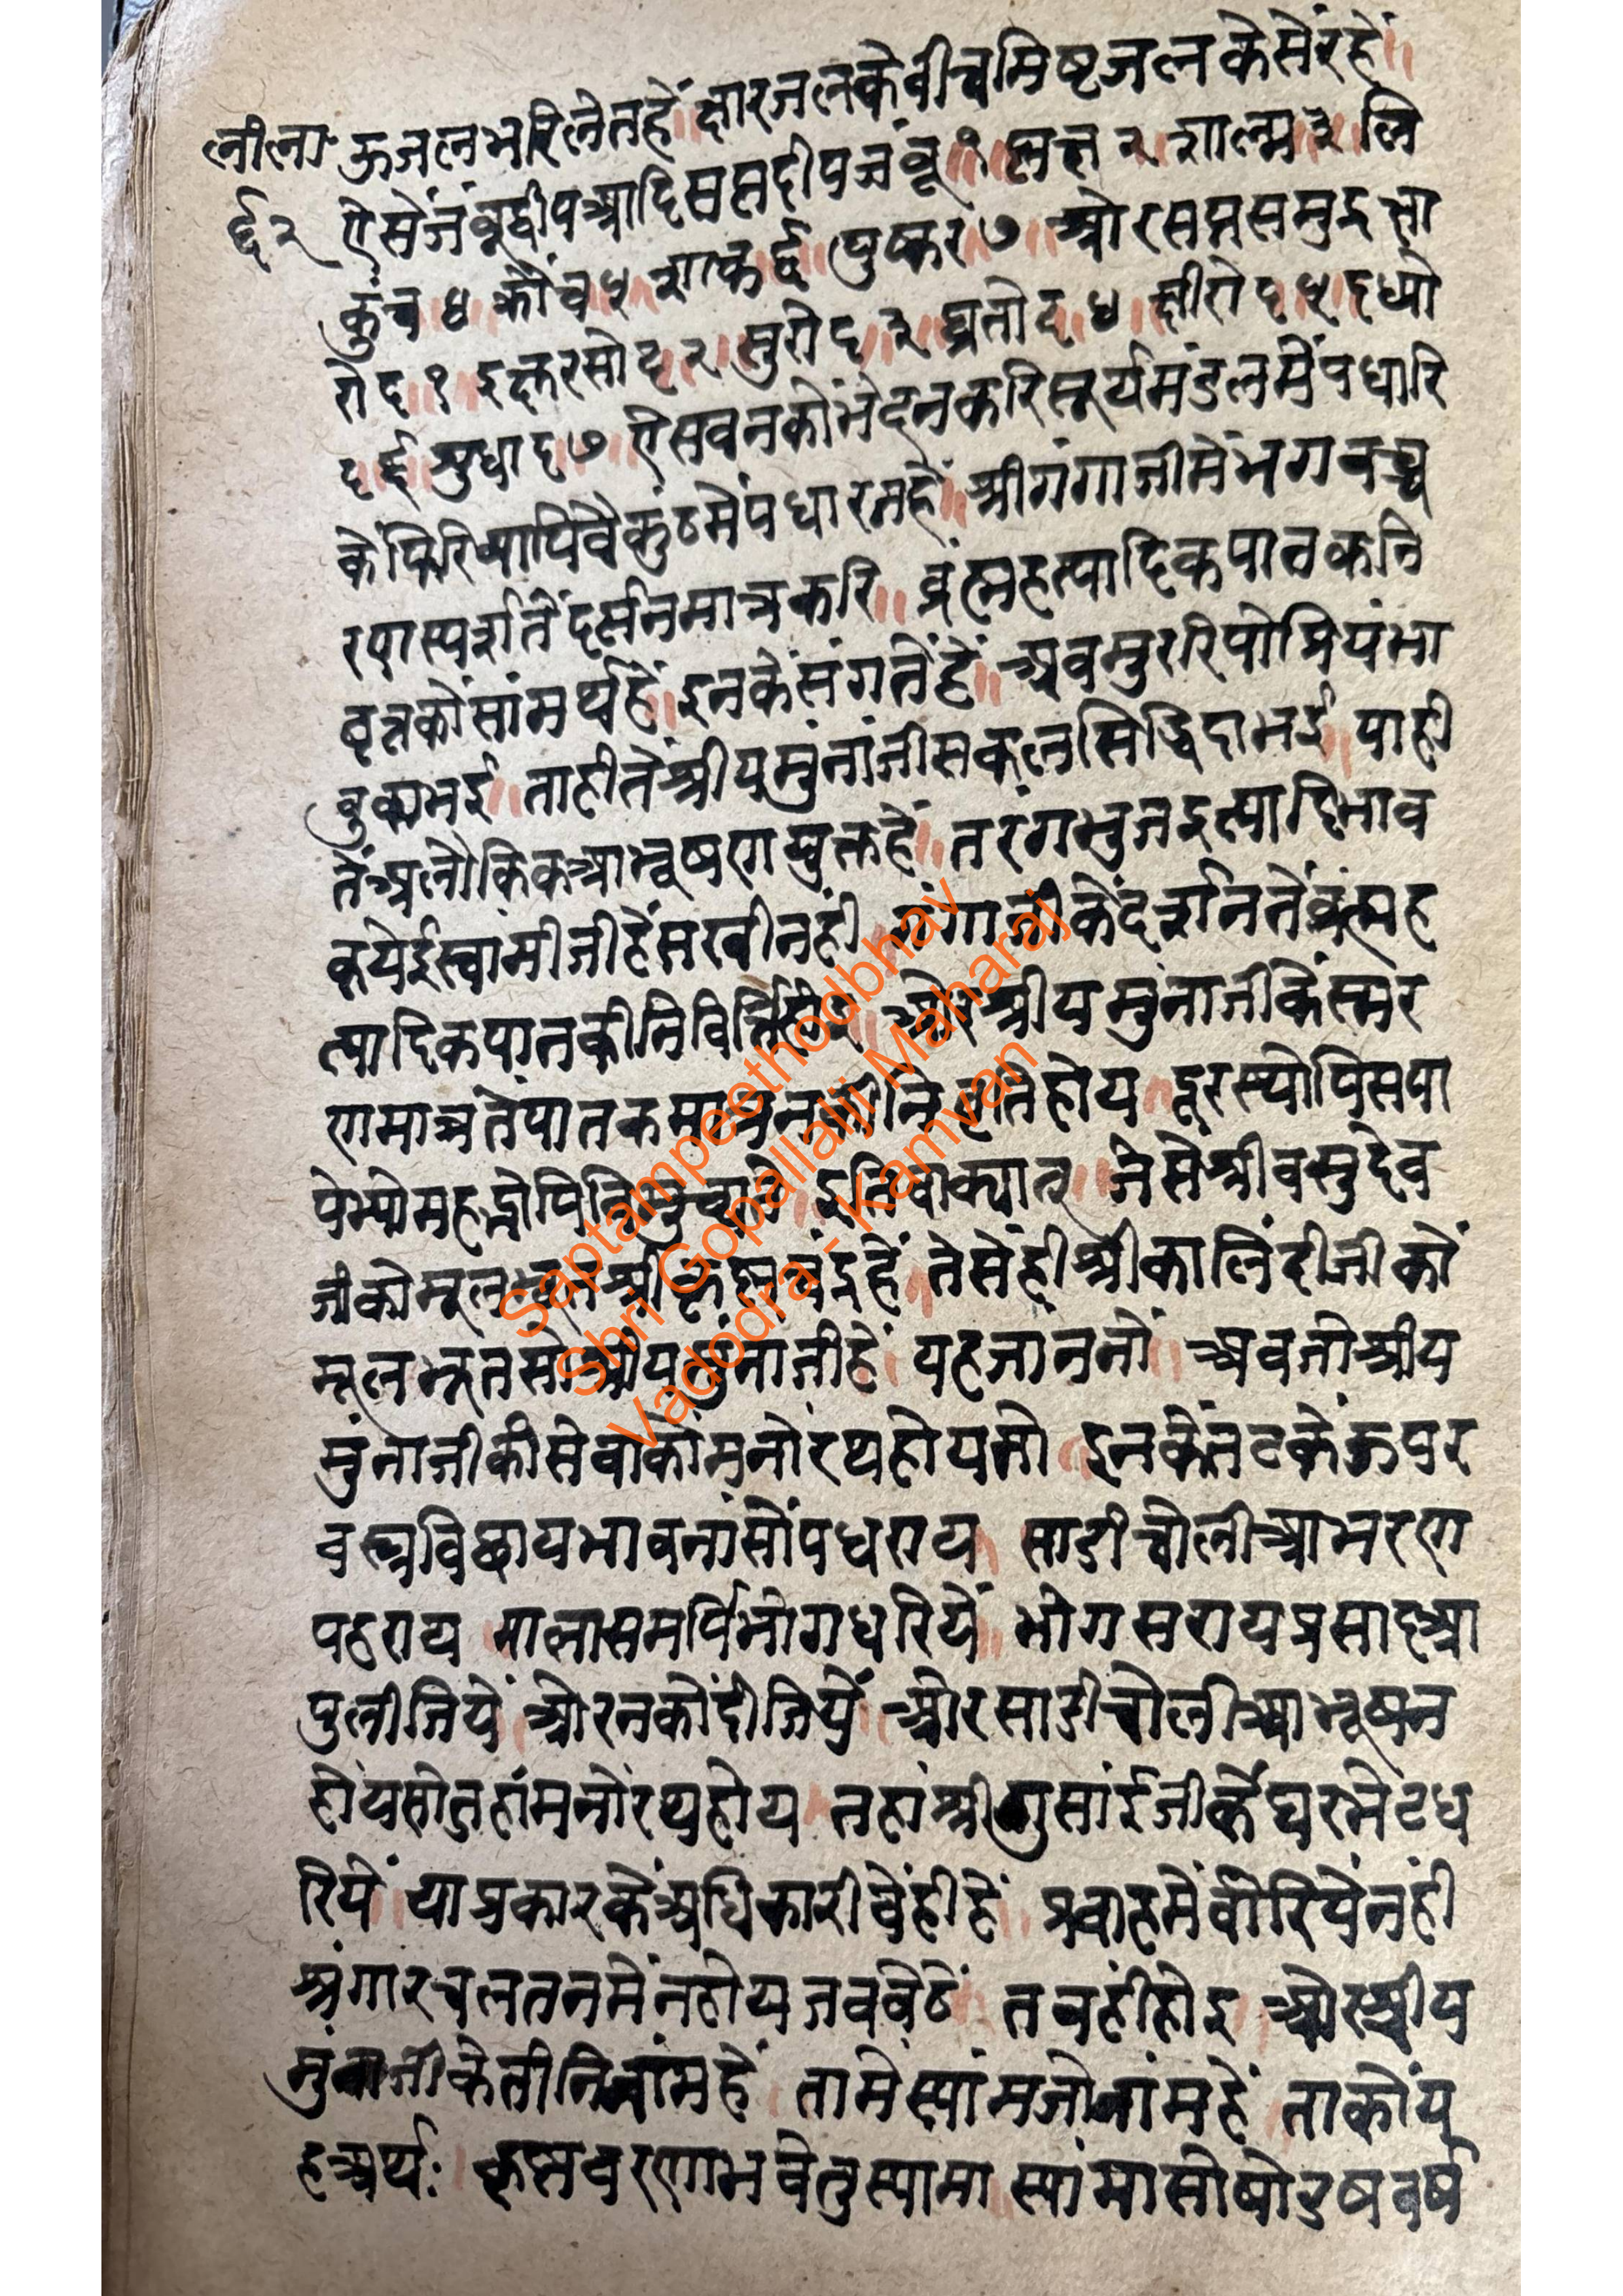 ऊजलभरिलेतहें॥क्षारजलकेवीचमिष्टजलकेसेंरहें॥
लीला
६२
ऐसेंजंबूद्वीपआदिसप्तदीपजंबू१॥प्लक्ष२शाल्म३लि
कुंच४क्रौंच५शाक६पुष्कर७॥ओरसप्तसमुद्रक्षा
रोद१॥इक्षुरसोद२सुरोद३घ्रतोद४क्षीरोद५दध्यो
द६सुधाद७॥ऐसबनकोंभेदनकरिसूर्यमंडलमेंपधारि
केंफिरियापिवैकुंठमेंपधारतहें॥श्रीगंगाजीमेंभगवच्च
रणस्पर्शतेंदर्सनमात्रकरि॥व्रंह्महत्यादिकपातकनि
वृत्तकोंसांमर्थ्यहें॥इनकेंसंगतेंहें॥अवमुररिपोप्रियंभा
वुकाभई॥ताहीतेंश्रीयमुंनांजीसकलसिद्धिदाभई॥याही
तेंअलौकिकआभूषणयुक्तहें॥तरंगभुजइत्यादिभाव
कयेईस्वांमीजीहेंसखीनहीं॥गंगाजीकेंदर्शनतेंव्रंह्मह
त्यादिकपातकीनिवित्तिहोय॥ओरश्रीयमुनाजीकेंस्मर
णमात्रतेंपातकमात्रनकीनिवृतिहोय॥दूरस्योपिसपा
पेभ्योमहद्भोपिविमुच्यते॥इतिवाक्यात्॥जेसेश्रीवसुदेव
जीकोमूलभूतश्रीकृष्णचंद्रहें॥तेसेंहीश्रीकालिंदीजीकों
मूलभूतसोश्रीयमुंनाजीहें॥यहजाननों॥अवजोश्रीय
मुंनाजीकीसेवाकोंमनोरथहोयतो॥इनकेंतटकेंऊपर
वस्त्रविछायभावनासोंपधराय॥साडीचोलीआभरण
पहराय॥मालासमर्पिभोगधरियें॥भोगसरायप्रसादआ
पुलीजियें॥ओरनकोंदीजियें॥ओरसाडीचोलीआभूषन
होयसोतहांमनोरथहोय॥तहांश्रीगुसांईजीकेंघरभेटध
रियें॥याप्रकारकेंअधिकारीवेंहीहें॥प्रवाहमेंवोरियेंनहीं
श्रंगारचलतनमेंनहोयजववेठें॥तवहींहोइ॥ओरश्रीय
मुंनाजीकेतीनिनांमहें॥तामेंस्यांमजोनांमहें॥ताकोंय
हअर्थः॥कृष्नवरणाभवेतुस्यामा॥स्यांमासोषोडषवर्ष
Saptampeethodbhav
Shri Gopallalji Maharaj
Vadodra - Kamvan